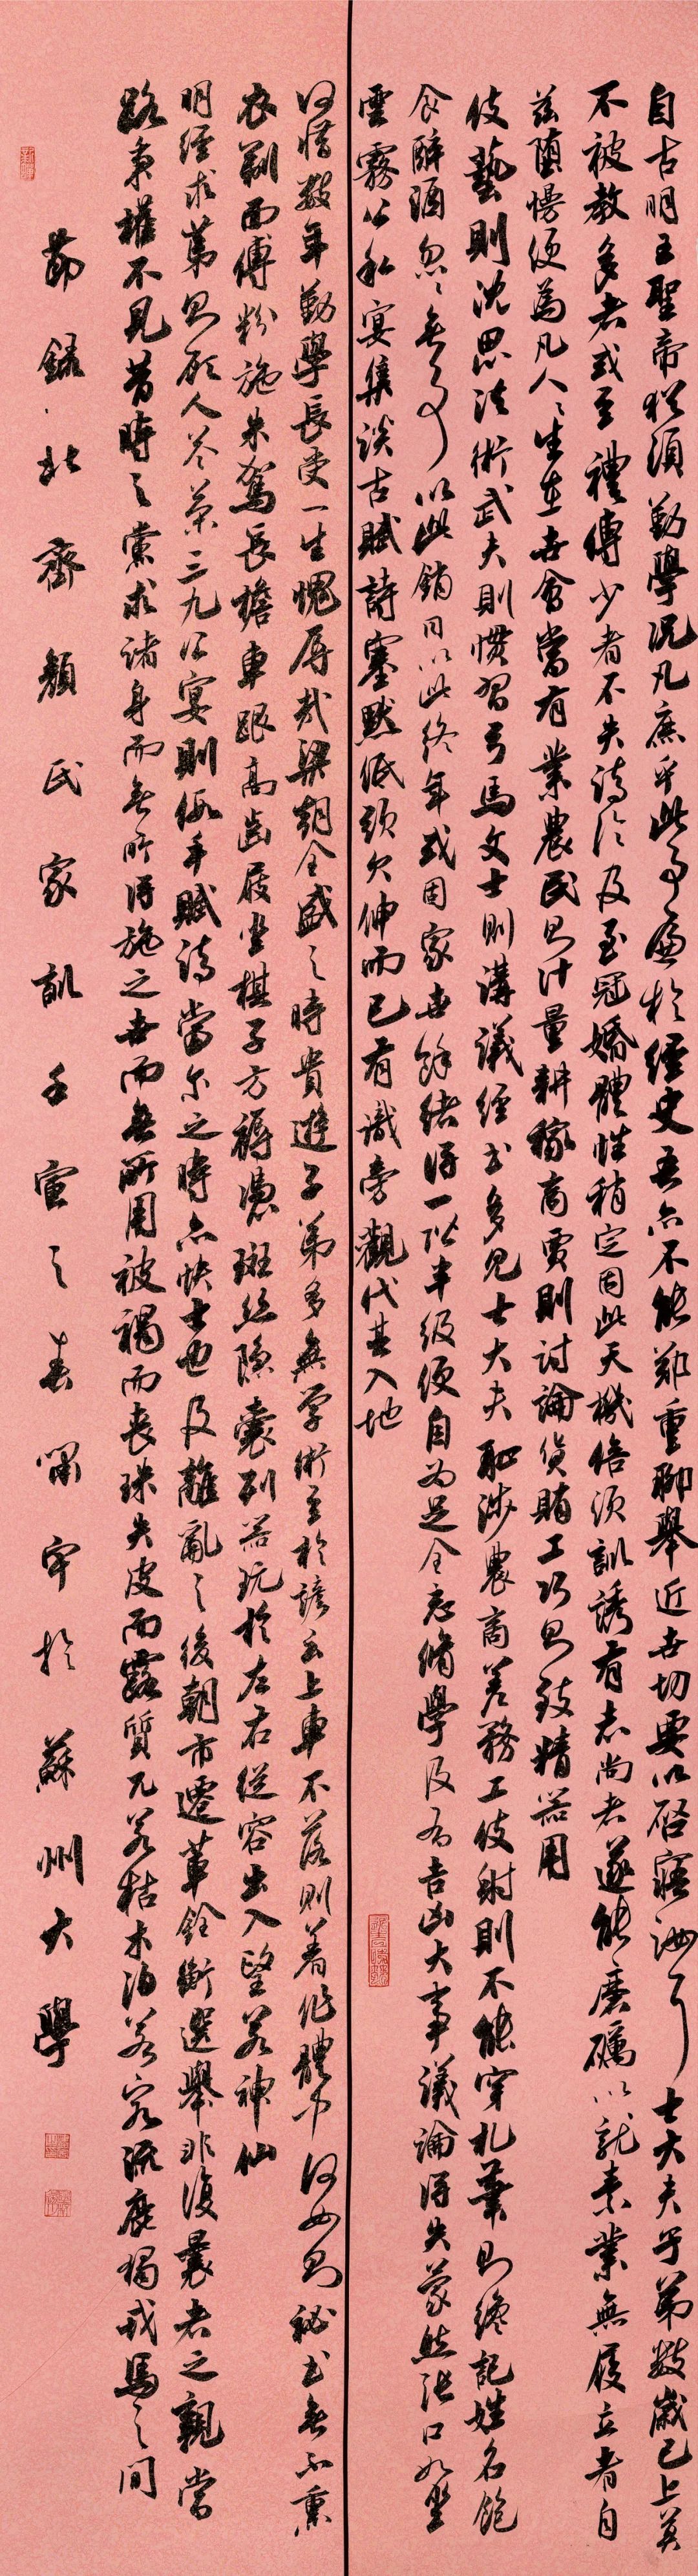 自古明王聖帝猶須勤學況凡庶乎此事遍於經史吾亦不能鄭重聊舉近世切要以啓寤汝耳士大夫子弟數歲已上莫
不被教多者或至禮傳少者不失詩論及至冠婚體性稍定因此天機倍須訓誘有志尚者遂能磨礪以就素業無履立者自
茲墮慢便為凡人人生在世會當有業農民則計量耕稼商賈則討論貨賄工巧則致精器用
伎藝則沈思法術武夫則慣習弓馬文士則講議經書多見士大夫恥涉農商羞務工伎射則不能穿札筆則纔記姓名飽
食醉酒忽忽無事以此銷日以此終年或因家世餘緒得一階半級便自為足全忘脩學及有吉凶大事議論得失蒙然張口如坐
雲霧公私宴集談古賦詩塞默低頭欠伸而已有識旁觀代其入地
何惜數年勤學長受一生愧辱哉梁朝全盛之時貴遊子弟多無學術至於諺云上車不落則著作體中何如則秘書無不熏
衣剃面傅粉施朱駕長檐車跟高齒屐坐棋子方褥憑斑絲隱囊列器玩於左右從容出入望若神仙
明經求第則顧人答策三九公宴則假手賦詩當尔之時亦快士也及離亂之後朝市遷革銓衡選舉非復曩者之親當
路秉權不見昔時之黨求諸身而無所得施之世而無所用被褐而喪珠失皮而露質兀若枯木泊若窮流鹿獨戎馬之間
節錄北齊顏氏家訓壬寅之春開宇於蘇州大學